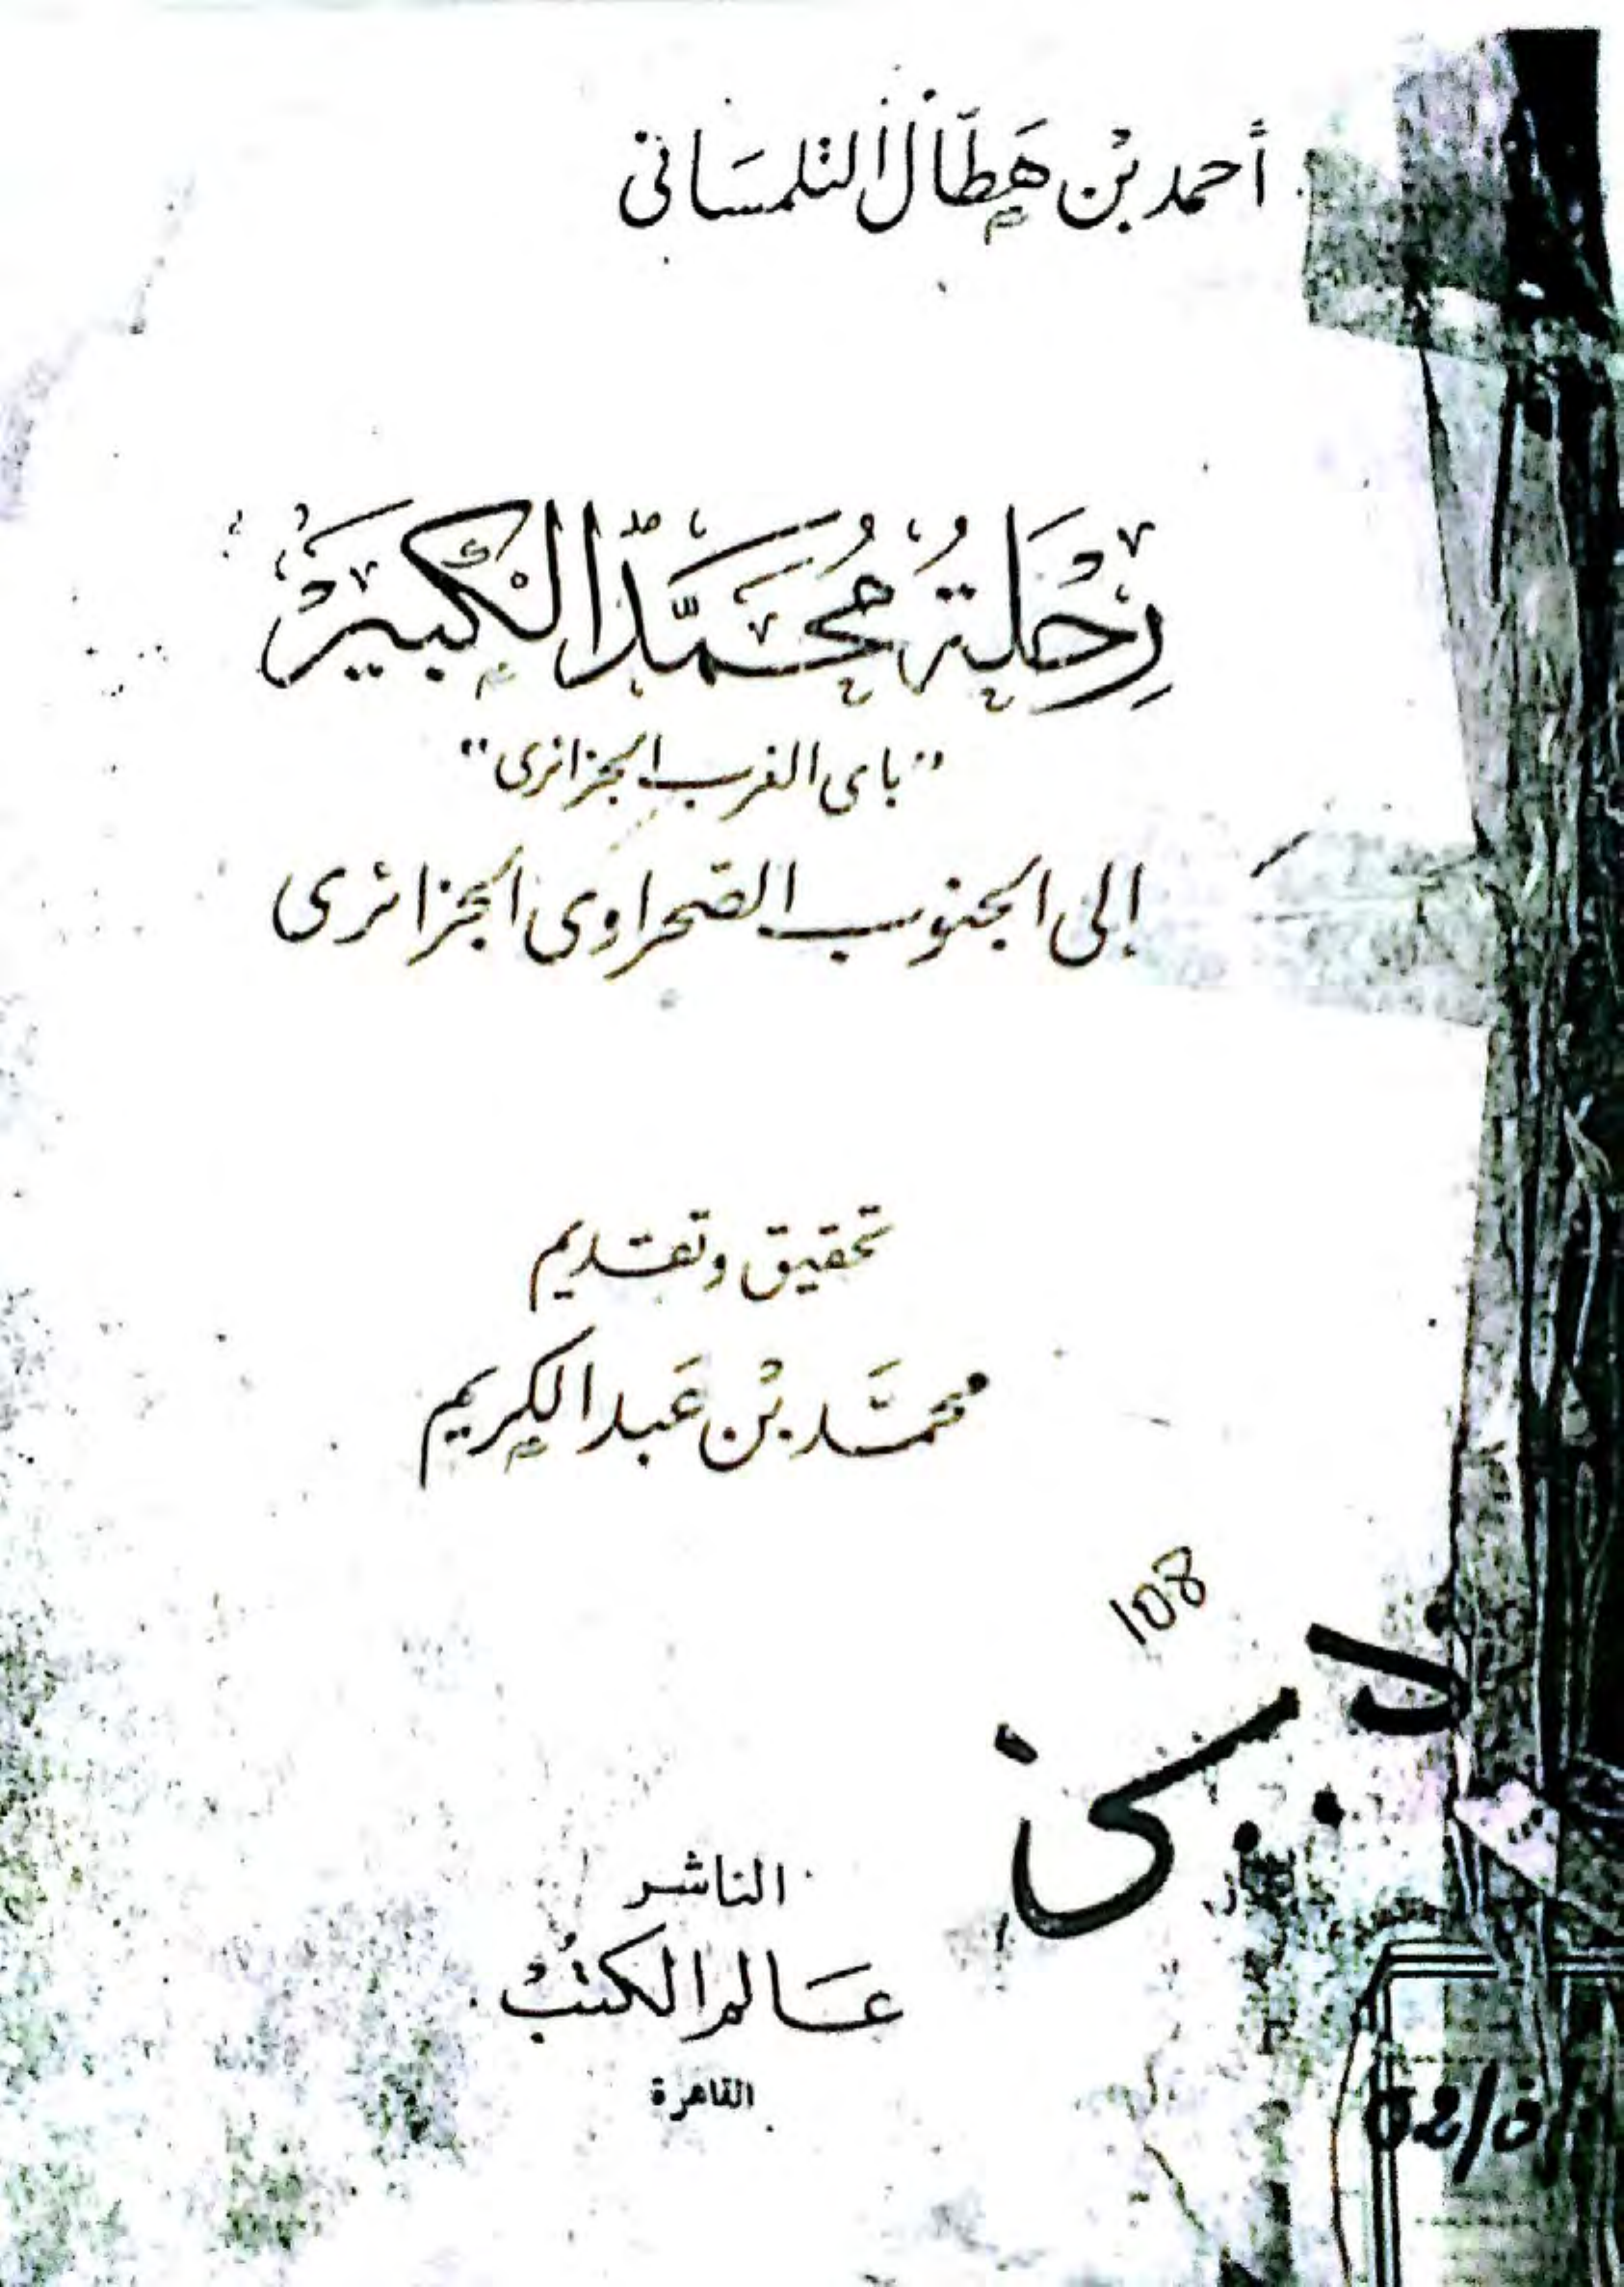 أحمد بْن هَطَّال التلمسَانى
رِحْلَةُ مُحَمَّد الكَبيْر
"باى الغرب الجزائرى"
إلى الجنوب الصحراوى الجزائرى
تحقيق وتقديم
محمَّد بْن عَبد الكريم
108
الناشر
عَالم الكتبْ
القاهرة